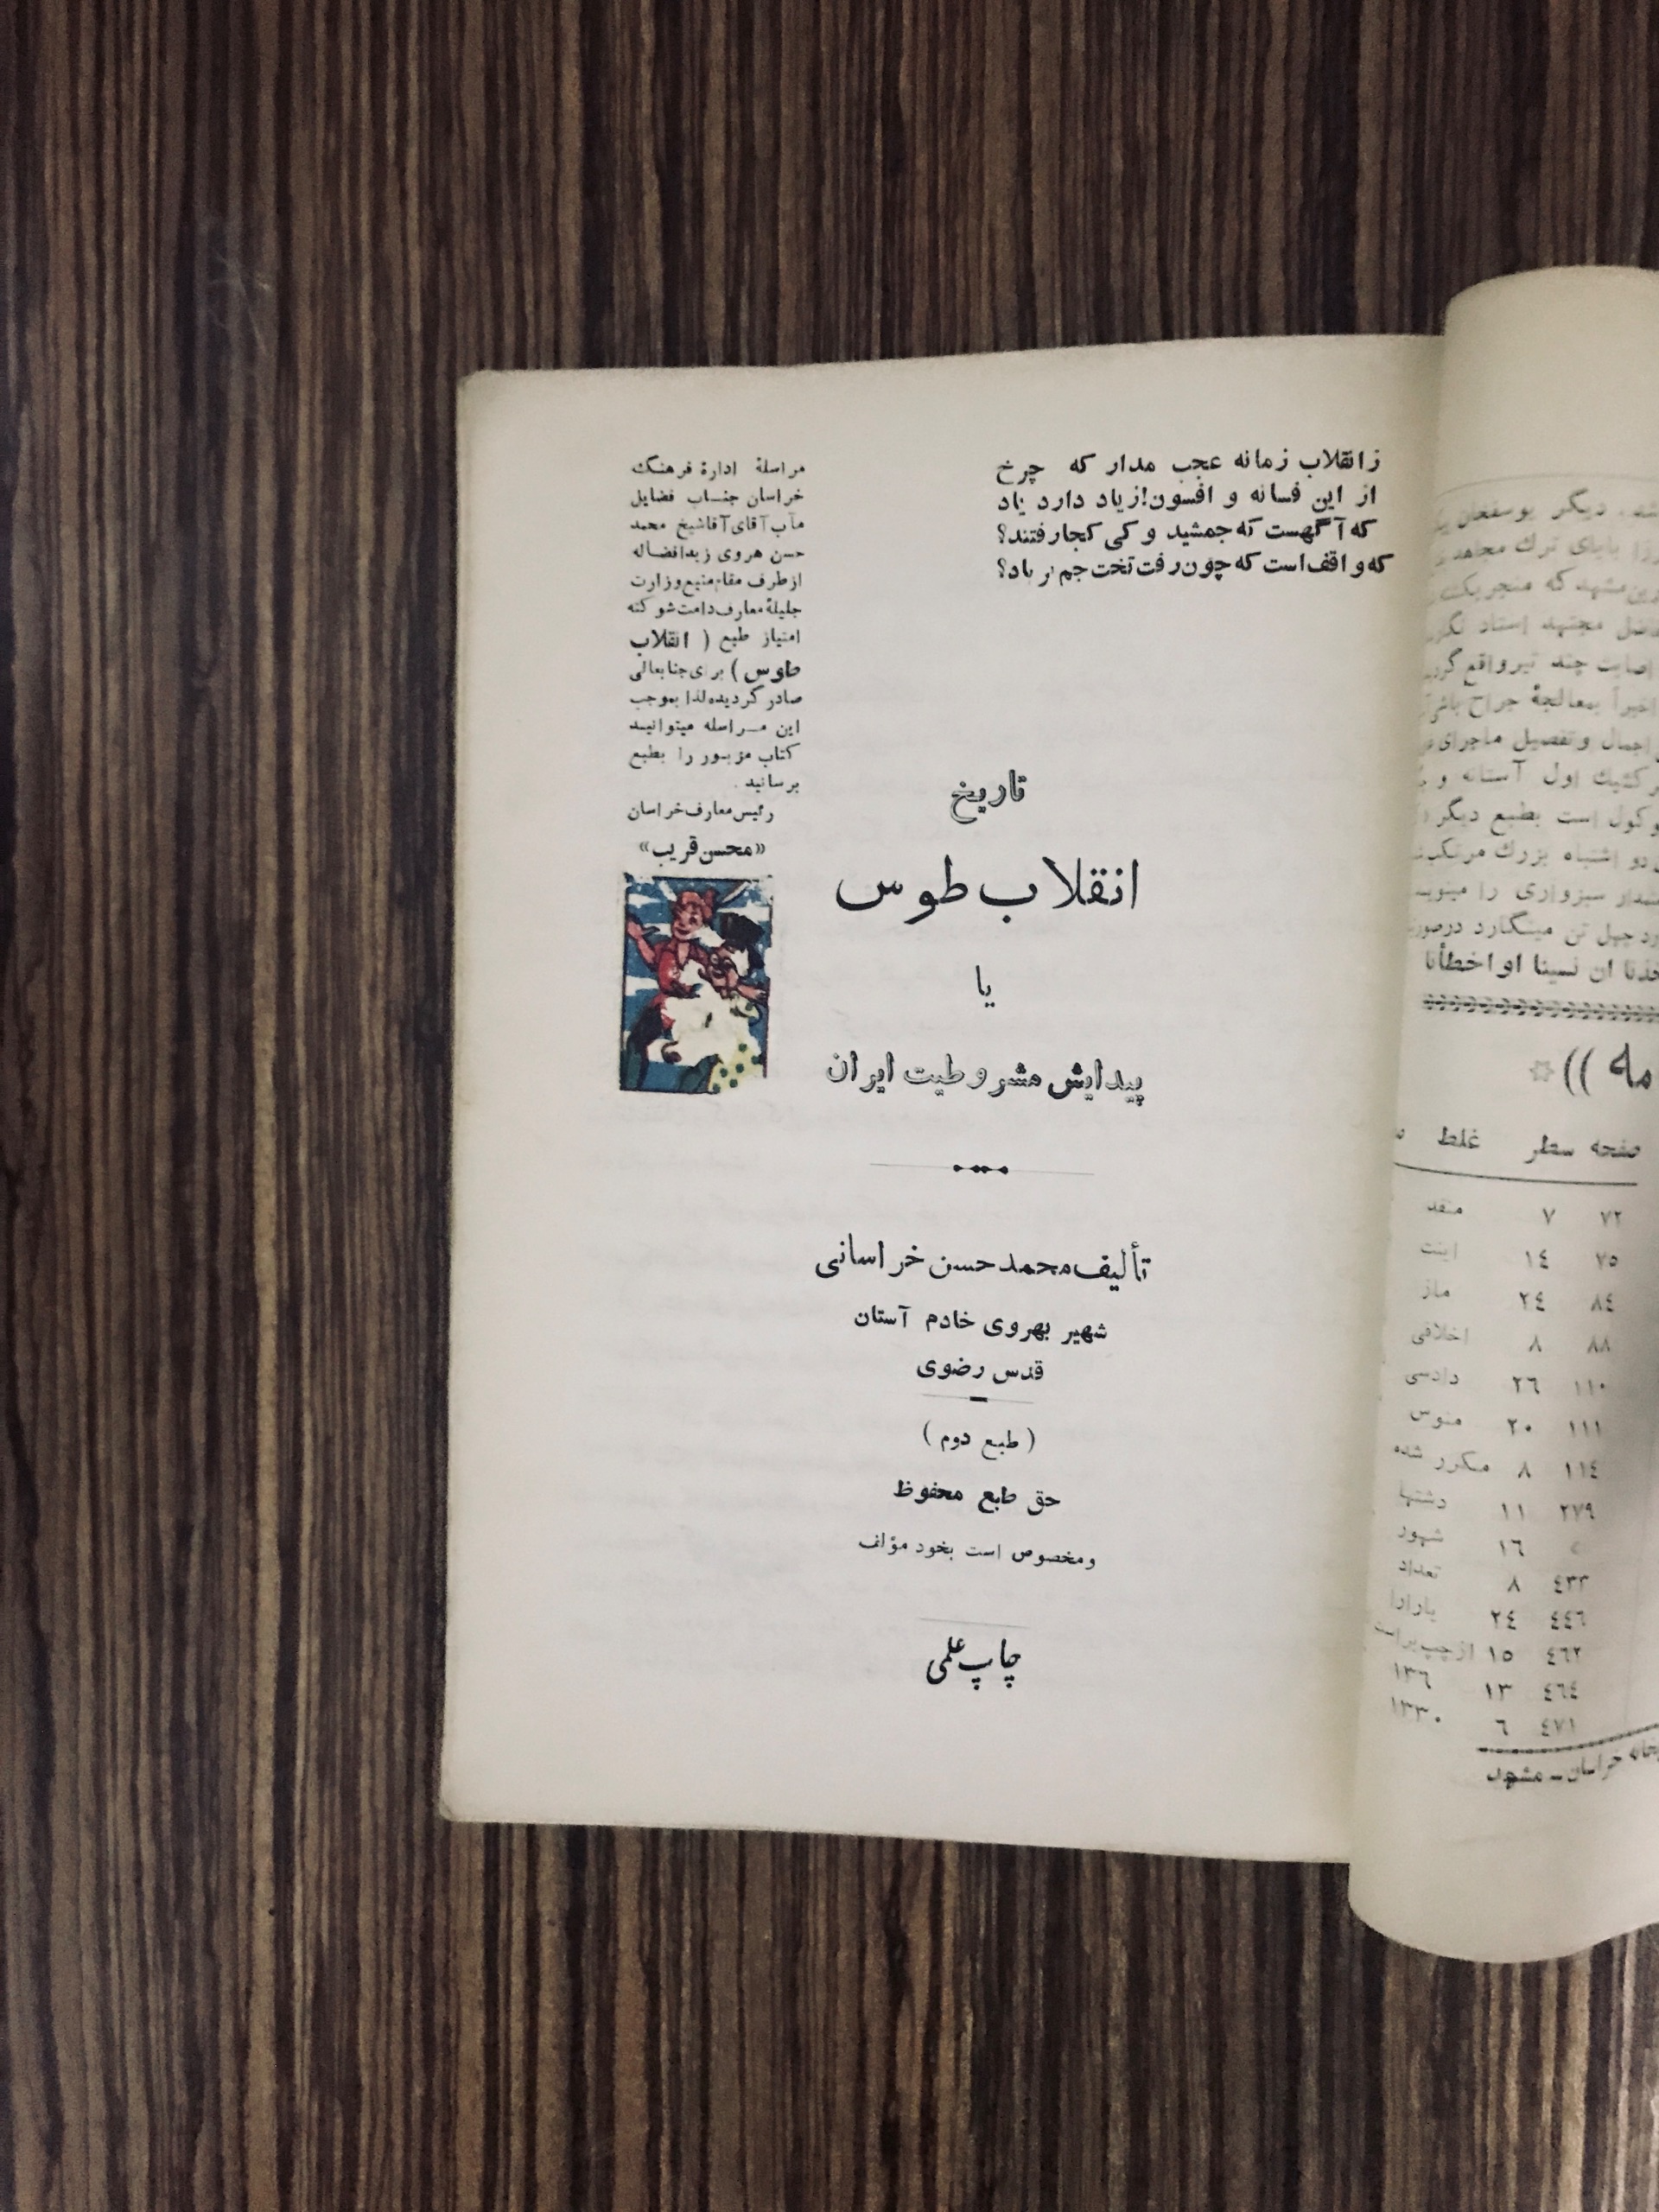 ز انقلاب زمانه عجب مدار که چرخ
از این فسانه و افسون! زیاد دارد یاد
که آگهست که جمشید و کی کجا رفتند؟
که واقف است که چون رفت تخت جم بر باد؟
مراسلهٔ ادارهٔ فرهنگ
خراسان جناب فضایل
مآب آقای آقا شیخ محمد
حسن هروی زید افضاله
از طرف مقام منیع وزارت
جلیلهٔ معارف دامت شوکته
امتیاز طبع ( انقلاب
طوس ) برای جنابعالی
صادر گردیده لذا بموجب
این مراسله میتوانید
کتاب مزبور را بطبع
برسانید .
رئیس معارف خراسان
«محسن قریب»
تاریخ
انقلاب طوس
یا
پیدایش مشروطیت ایران
تألیف محمد حسن خراسانی
شهیر بهروی خادم آستان
قدس رضوی
( طبع دوم )
حق طبع محفوظ
و مخصوص است بخود مؤلف
چاپ علمی
شد. دیگر یوسفخان
بابای ترك مجاهد
مشهد که منجر بیك
مجتهد استاد
اصابت چند تیر واقع
اخیراً بمعالجهٔ جراح باشی
اجمال و تفصیل ماجرای
کشیك اول آستانه و
موکول است بطبع دیگر
دو اشتباه بزرك مرتکب
سبزواری را
چهل تن مینگارد
ان نسینا او اخطأنا
مه ))
صفحه سطر غلط
۷۲ ۷ منقد
۷۵ ۱٤ اینت
۸٤ ۲٤ ماز
۸۸ ۸ اخلاقی
۱۱۰ ۲٦ دادسی
۱۱۱ ۲۰ منوس
۱۱٤ ۸ مکرر شده
۲۷۹ ۱۱ دشتها
۱٦ شهود
٤۳۳ ۸ تعداد
٤٤٦ ۲٤ یارارا
٤٦۲ ۱۵ از چپ براست
٤٦٤ ۱۳ ۱۳٦
٤۷۱ ٦ ۱۳۳۰
خراسان ـ مشهد